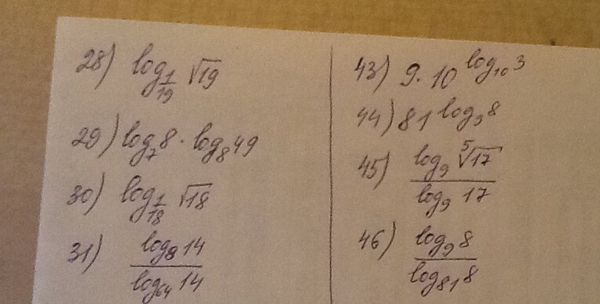 28) log_{1/19} √19
29) log_7 8 · log_8 49
30) log_{1/18} √18
31) log_8 14 / log_{64} 14
43) 9 · 10^{log_{10} 3}
44) 81^{log_9 8}
45) log_9 ⁵√17 / log_9 17
46) log_9 8 / log_{81} 8